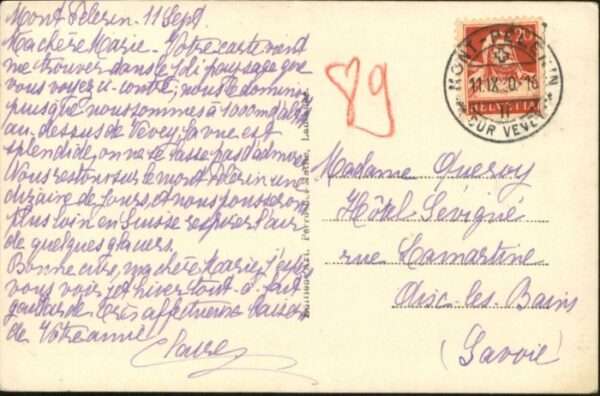 Mont Pélerin. 11 Sept.
Ma chère Marie. Votre carte vient
me trouver dans le joli paysage que
vous voyez ci-contre; nous le dominons
puisque nous sommes à 1000 m d'alt.
au-dessus de Vevey. La vue est
splendide, on ne se lasse pas d'admirer
Nous restons sur le mont Pélerin une
dizaine de jours et nous pousserons
plus loin en Suisse respirer l'air
de quelques glaciers.
Bonne cure, ma chère Marie, j'espère
vous voir cet hiver tout à fait
gaillarde. Très affectueux baisers
de Votre amie
Claire
Lausanne
89
20
HELVETIA
MONT-PELERIN
11.IX.
SUR VEVEY
Madame Queroy
Hôtel Sévigné
rue Lamartine
Aix-les-Bains
(Savoie)